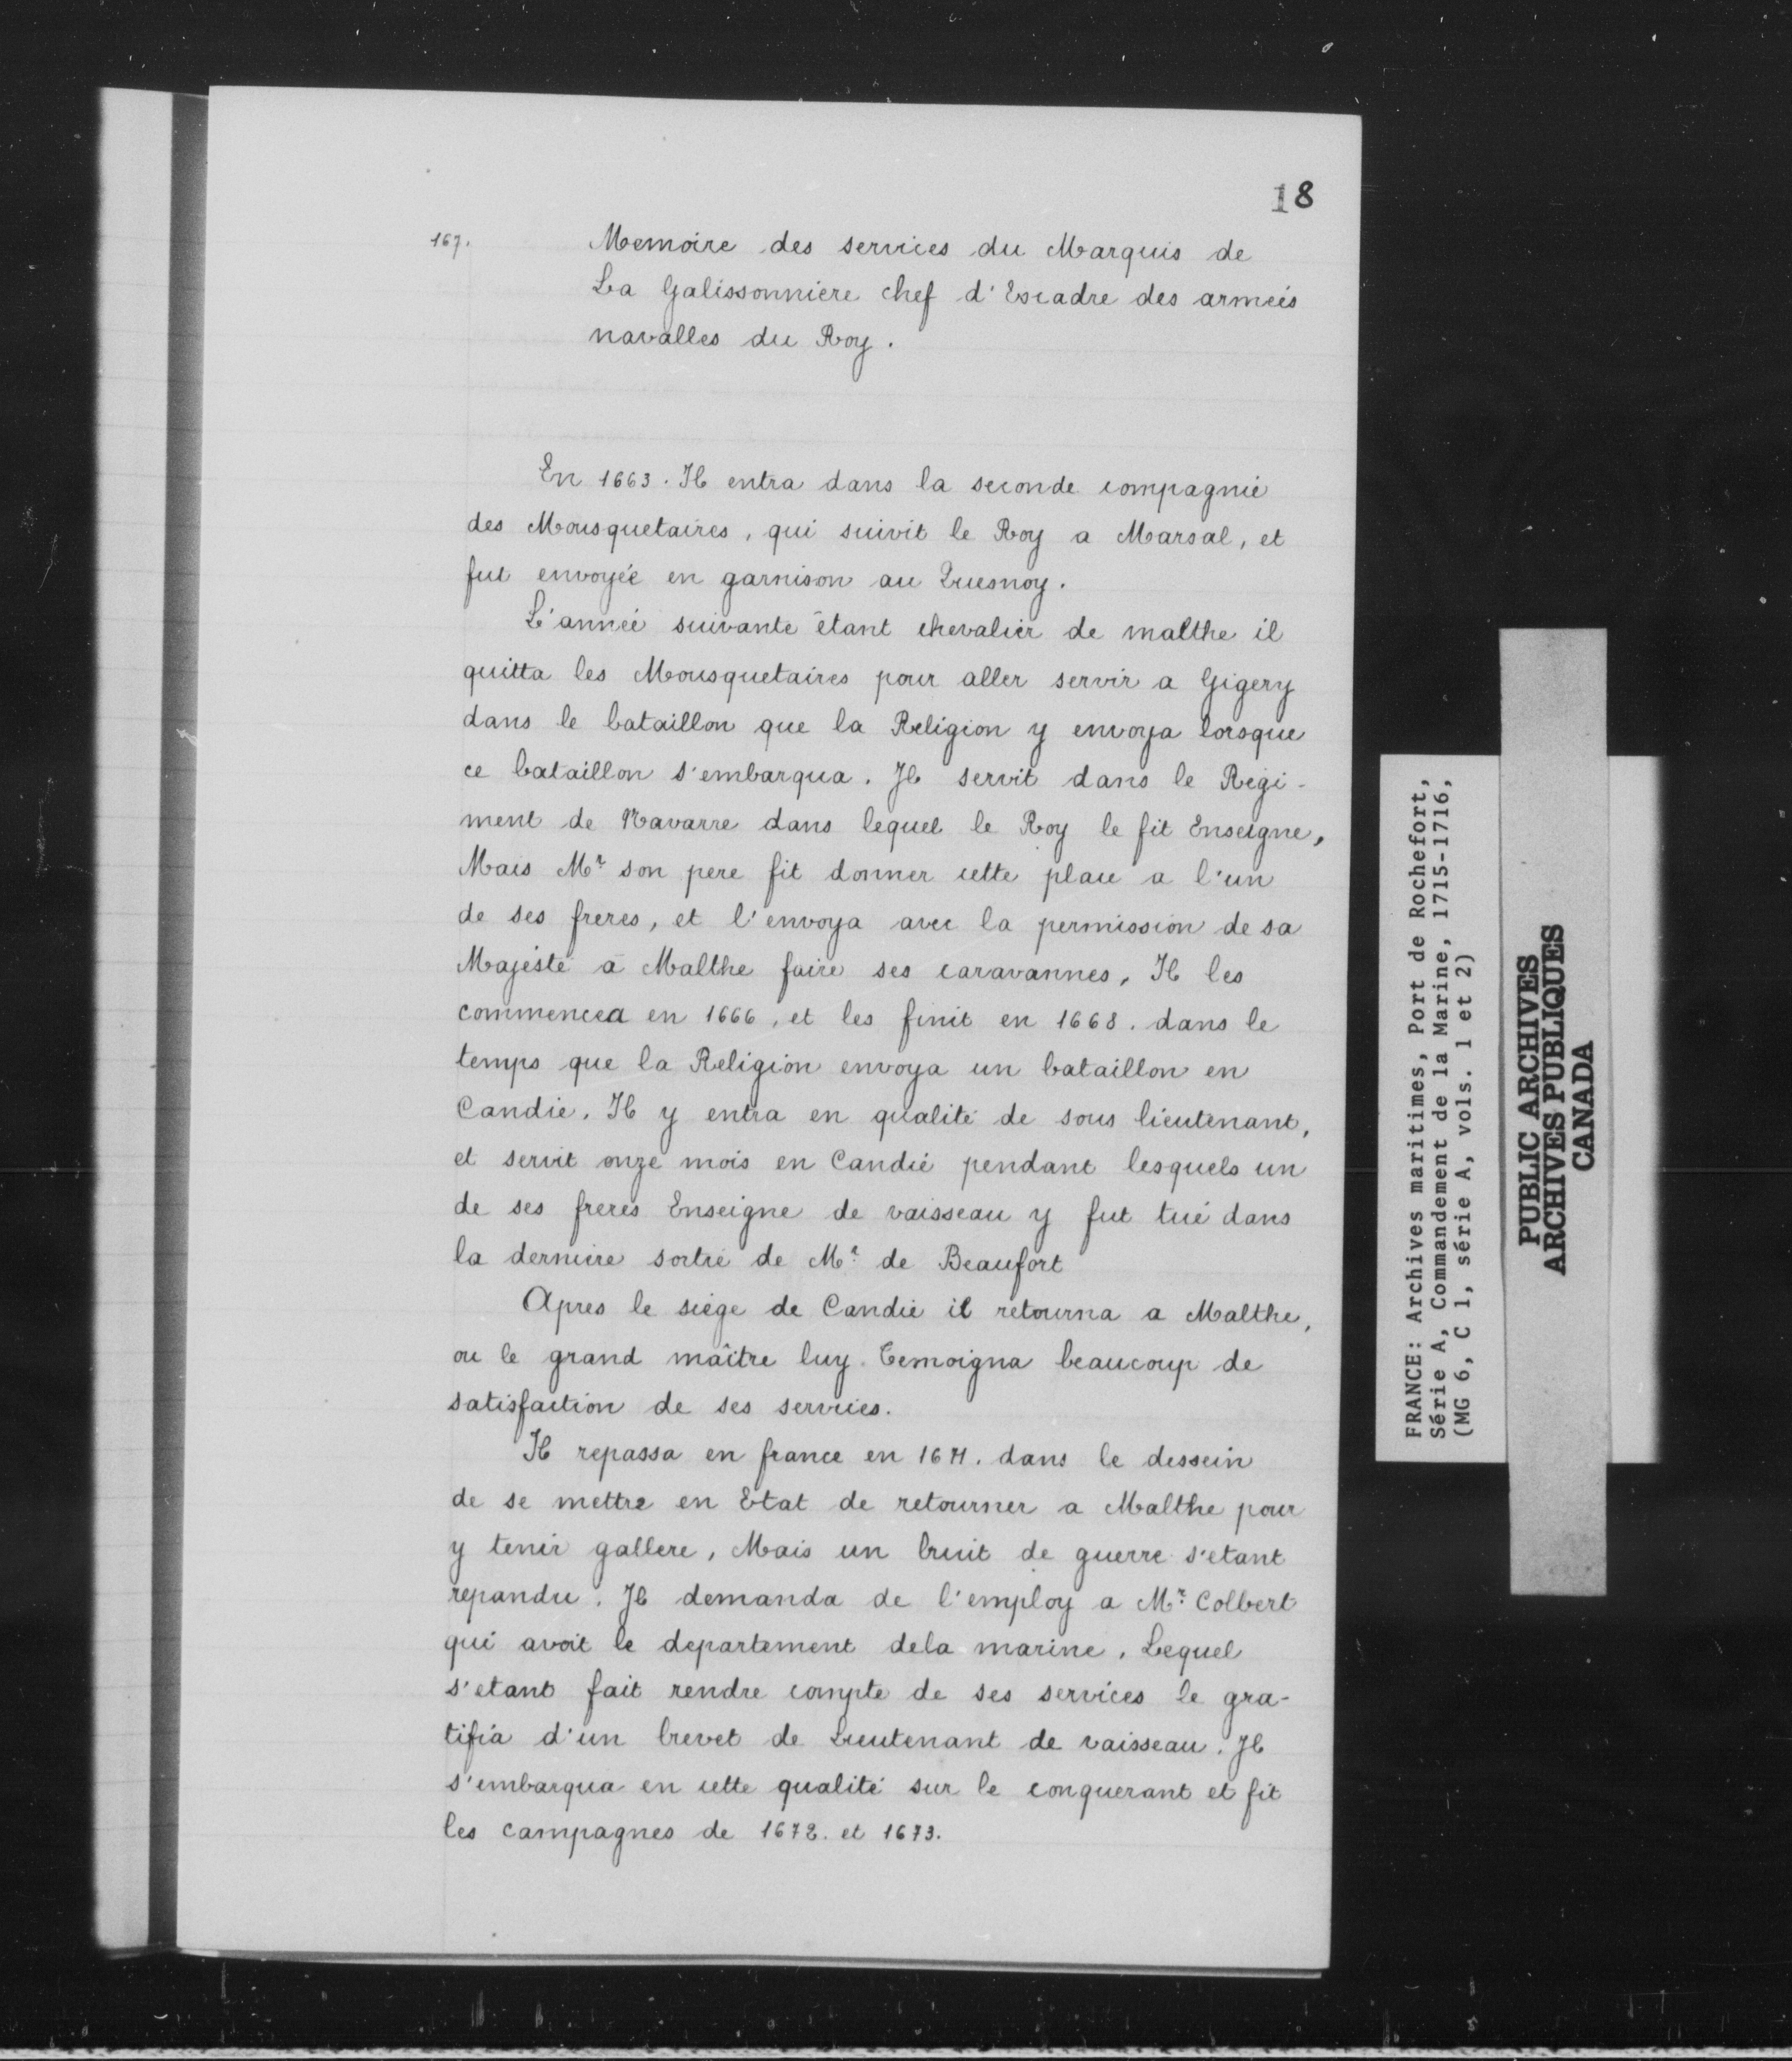 18
167.
Memoire des services du Marquis de
La Galissonniere chef d'Escadre des armeés
navalles du Roy.
En 1663. Il entra dans la seconde compagnie
des Mousquetaires, qui suivit le Roy a Marsal, et
fut envoyée en garnison au Quesnoy.
L'année suivante étant chevalier de malthe il
quitta les Mousquetaires pour aller servir a Gigery
dans le bataillon que la Religion y envoya lorsque
ce bataillon s'embarqua. Il servit dans le Regi-
ment de Navarre dans lequel le Roy le fit Enseigne,
Mais Mr son pere fit donner cette place a l'un
de ses freres, et l'envoya avec la permission de sa
Majesté a Malthe faire ses caravannes, Il les
commencea en 1666, et les finit en 1668. dans le
temps que la Religion envoya un bataillon en
Candie. Il y entra en qualité de sous lieutenant,
et servit onze mois en Candie pendant lesquels un
de ses freres Enseigne de vaisseau y fut tué dans
la derniere sortie de Mr de Beaufort
Apres le siége de Candie il retourna a Malthe,
ou le grand maître luy temoigna beaucoup de
satisfaction de ses services.
Il repassa en france en 1671. dans le dessein
de se mettre en Etat de retourner a Malthe pour
y tenir gallere, Mais un bruit de guerre s'etant
repandu. Il demanda de l'employ a Mr Colbert
qui avoit le departement dela marine, Lequel
s'etant fait rendre compte de ses services le gra-
tifia d'un brevet de Lieutenant de vaisseau. Il
s'embarqua en cette qualité sur le conquerant et fit
les campagnes de 1672. et 1673.
FRANCE: Archives maritimes, Port de Rochefort,
Série A, Commandement de la Marine, 1715-1716,
(MG 6, C 1, série A, vols. 1 et 2)
PUBLIC ARCHIVES
ARCHIVES PUBLIQUES
CANADA